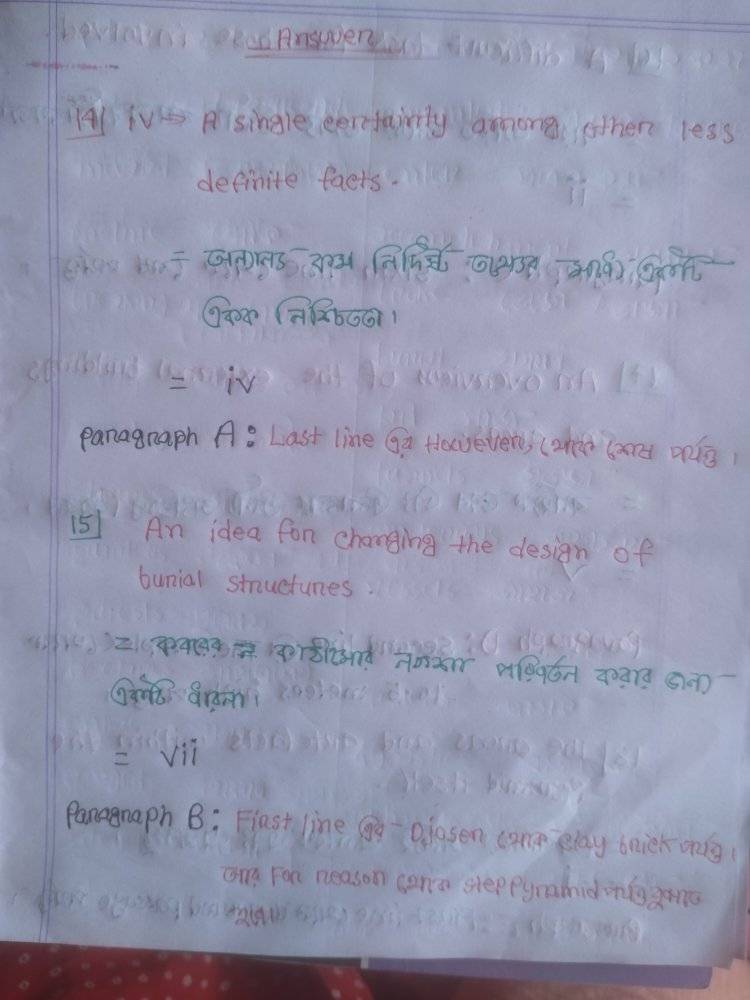 Answer
14| iv ⇒ A single certainty among other less
definite facts.
= অন্যান্য কম নির্দিষ্ট তথ্যের মধ্যে একটি
একক নিশ্চিততা।
= iv
paragraph A: Last line এর However, থেকে শেষ পর্যন্ত।
15| An idea for changing the design of
burial structures.
= কবরের কাঠামোর নকশা পরিবর্তন করার জন্য
একটি ধারনা।
= vii
Paragraph B: First line এর Djosen থেকে clay brick পর্যন্ত।
আর For reason থেকে step Pyramid পর্যন্ত